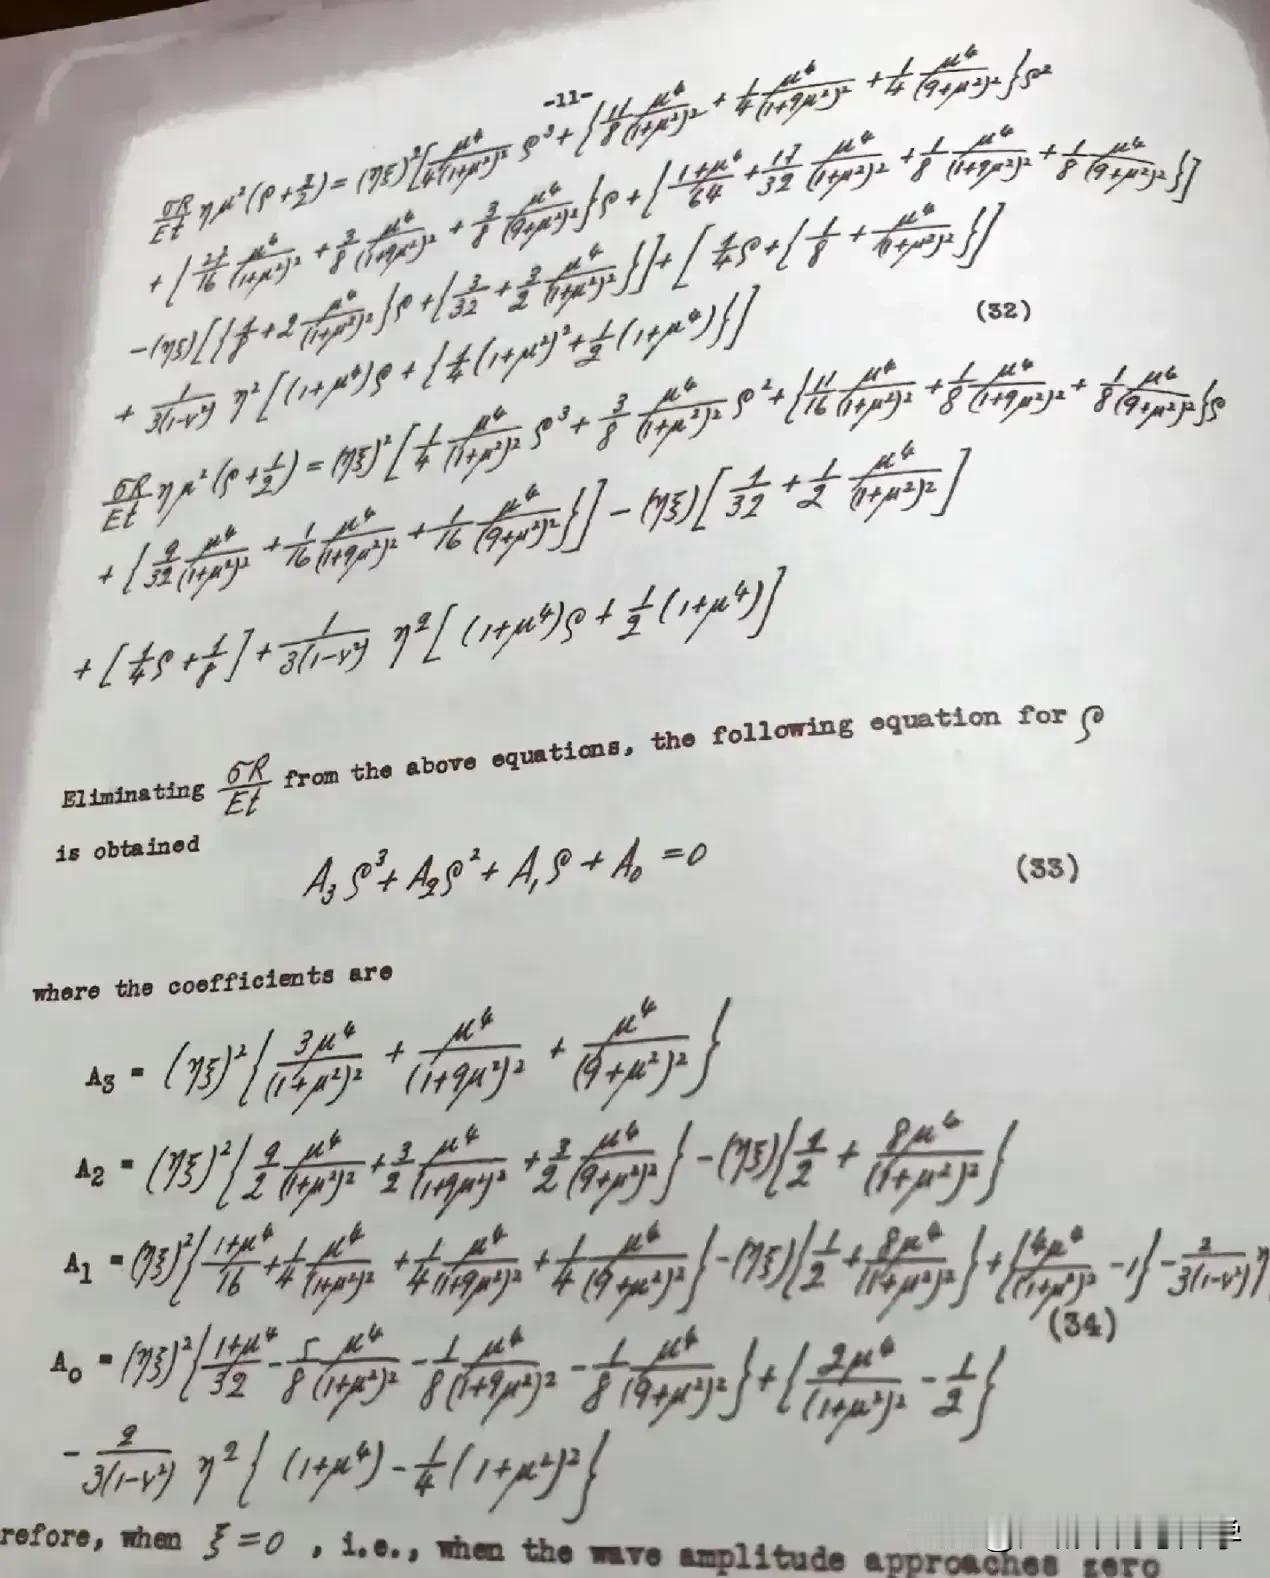 -11-
σR/Et ημ²(ρ+3/2) = (ηξ)²[1/4 μ⁴/(1+μ²)² ρ³ + {11/8 μ⁴/(1+μ²)² + 1/4 μ⁴/(1+9μ²)² + 1/4 μ⁴/(9+μ²)²}ρ²
+ {27/16 μ⁴/(1+μ²)² + 3/8 μ⁴/(1+9μ²)² + 3/8 μ⁴/(9+μ²)²}ρ + {1+μ⁴/64 + 17/32 μ⁴/(1+μ²)² + 1/8 μ⁴/(1+9μ²)² + 1/8 μ⁴/(9+μ²)²}]
-(ηξ)[{1/8 + 2 μ⁴/(1+μ²)²}ρ + {3/32 + 3/2 μ⁴/(1+μ²)²}] + [1/4 ρ + {1/8 + μ⁴/(1+μ²)²}]
+ 1/3(1-ν²) η²[(1+μ⁴)ρ + {1/4(1+μ²)² + 1/2(1+μ⁴)}] (32)
σR/Et ημ²(ρ+1/2) = (ηξ)²[1/4 μ⁴/(1+μ²)² ρ³ + 3/8 μ⁴/(1+μ²)² ρ² + {11/16 μ⁴/(1+μ²)² + 1/8 μ⁴/(1+9μ²)² + 1/8 μ⁴/(9+μ²)²}ρ
+ {9/32 μ⁴/(1+μ²)² + 1/16 μ⁴/(1+9μ²)² + 1/16 μ⁴/(9+μ²)²}] - (ηξ)[1/32 + 1/2 μ⁴/(1+μ²)²]
+ [1/4 ρ + 1/8] + 1/3(1-ν²) η²[(1+μ⁴)ρ + 1/2(1+μ⁴)]
Eliminating σR/Et from the above equations, the following equation for ρ
is obtained
A₃ρ³ + A₂ρ² + A₁ρ + A₀ = 0 (33)
where the coefficients are
A₃ = (ηξ)²{3μ⁴/(1+μ²)² + μ⁴/(1+9μ²)² + μ⁴/(9+μ²)²}
A₂ = (ηξ)²{9/2 μ⁴/(1+μ²)² + 3/2 μ⁴/(1+9μ²)² + 3/2 μ⁴/(9+μ²)²} - (ηξ){1/2 + 8μ⁴/(1+μ²)²}
A₁ = (ηξ)²{1+μ⁴/16 + 1/4 μ⁴/(1+μ²)² + 1/4 μ⁴/(1+9μ²)² + 1/4 μ⁴/(9+μ²)²} - (ηξ){1/2 + 8μ⁴/(1+μ²)²} + {4μ⁴/(1+μ²)² - 1} - 2/3(1-ν²) η
(34)
A₀ = (ηξ)²{1+μ⁴/32 - 5/8 μ⁴/(1+μ²)² - 1/8 μ⁴/(1+9μ²)² - 1/8 μ⁴/(9+μ²)²} + {2μ⁴/(1+μ²)² - 1/2}
- 2/3(1-ν²) η²{(1+μ⁴) - 1/4(1+μ²)²}
refore, when ξ=0 , i.e., when the wave amplitude approaches zero